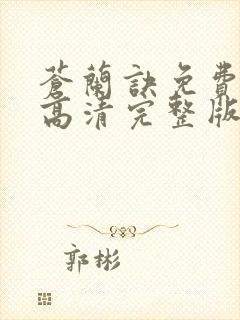 蒼蘭訣免費
高清完整版
郭彬